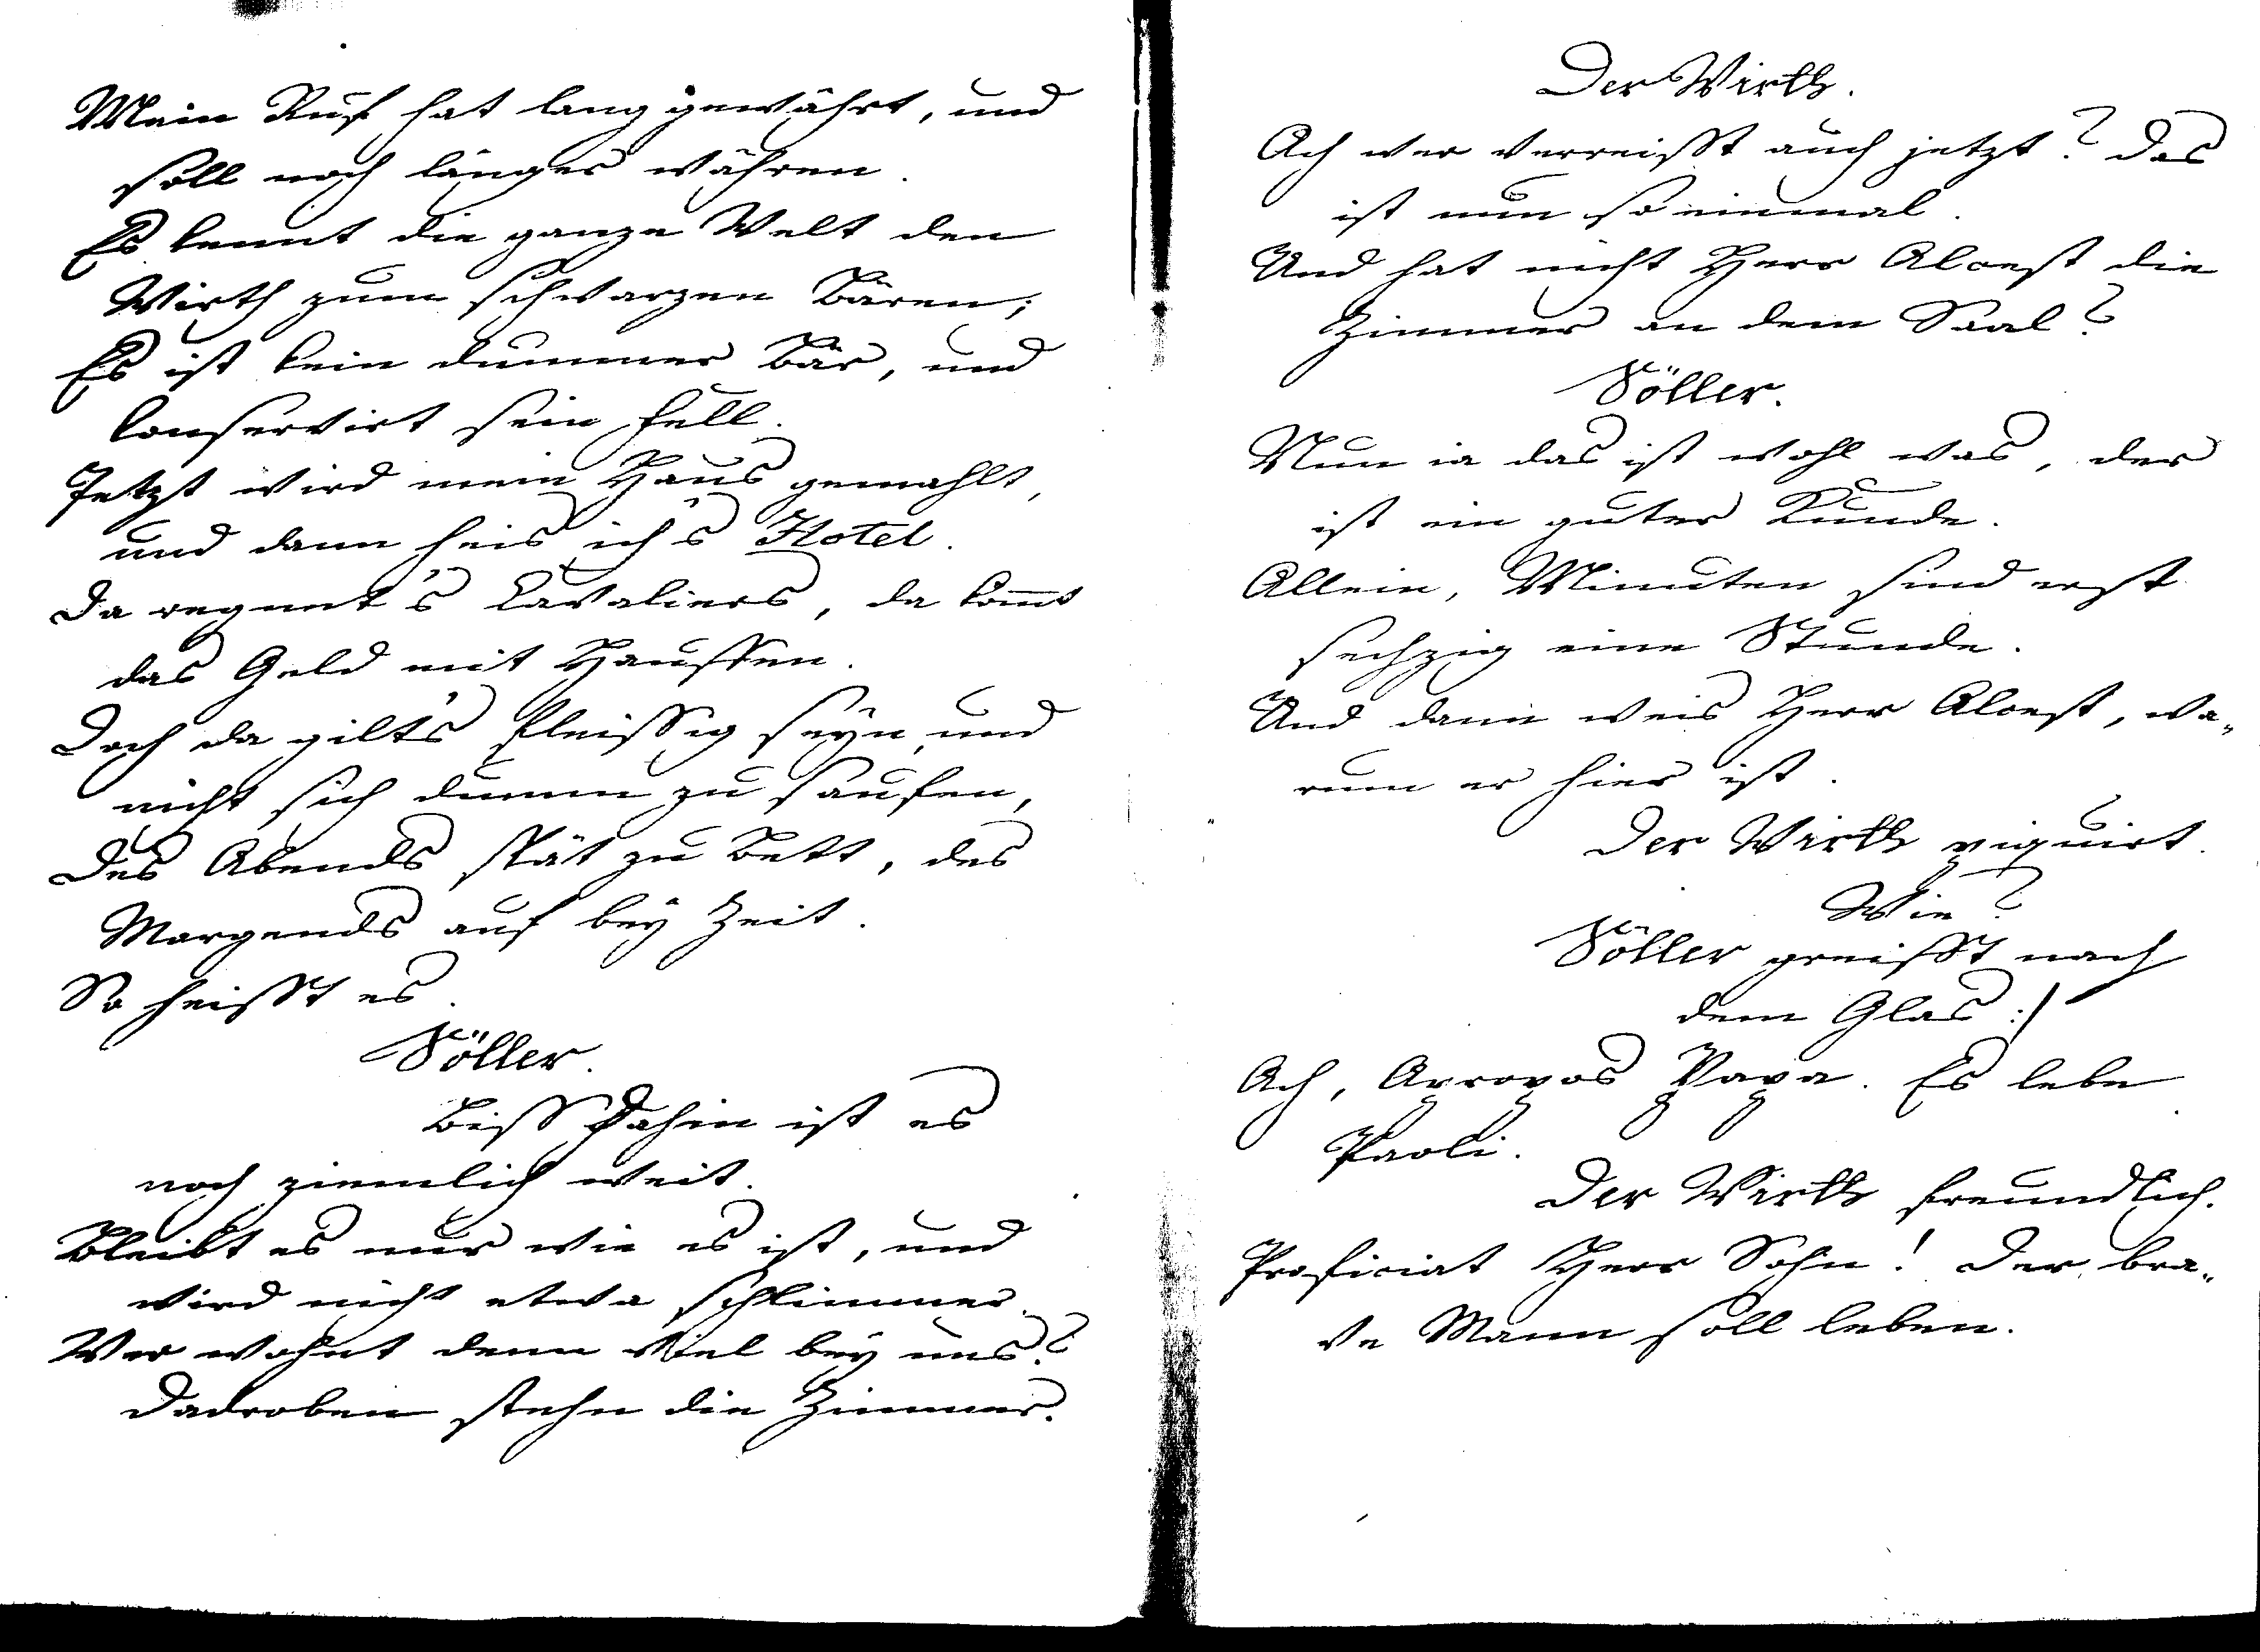 Mein Ruf hat lang gewährt, und
soll noch länger währen.
Es kennt die ganze Welt den
Wirth zum schwarzen Bären;
Es ist kein dummer Bär, und
konservirt sein Fell.
Jetzt wird mein Haus gemahlt,
und dann heis ich's Hotel.
Da regnet's Cavaliers, da kom̄t
das Geld mit Hauffen.
Doch da gilt's fleissig seyn, und
nicht sich dumm zu saufen,
Des Abends spät zu Bett, des
Morgends auf bey Zeit.
So heisst es.
Söller.
Biss dahin ist es
noch ziemlich weit.
Bleibt es nur wie es ist, und
wird nicht etwa schlimmer.
Wer wohnt denn viel bey uns?
Dadroben stehn die Zimmer.
Der Wirth.
Ach wer verreisst auch jetzt? Das
ist nun so einmal.
Und hat nicht Herr Alcest die
Zimmer an dem Saal?
Söller.
Nun ia das ist wohl was, der
ist ein guter Kunde.
Allein, Minuten sind erst
sechzig eine Stunde.
Und dann weis Herr Alcest, wa„
rum er hier ist.
Der Wirth piquirt.
Wie?
Söller greifft nach
dem Glas :/
Ach, Apropos Papa. Es lebe
Paoli.
Der Wirth freundlich.
Proficiat Herr Sohn! Der bra„
ve Mann soll leben.